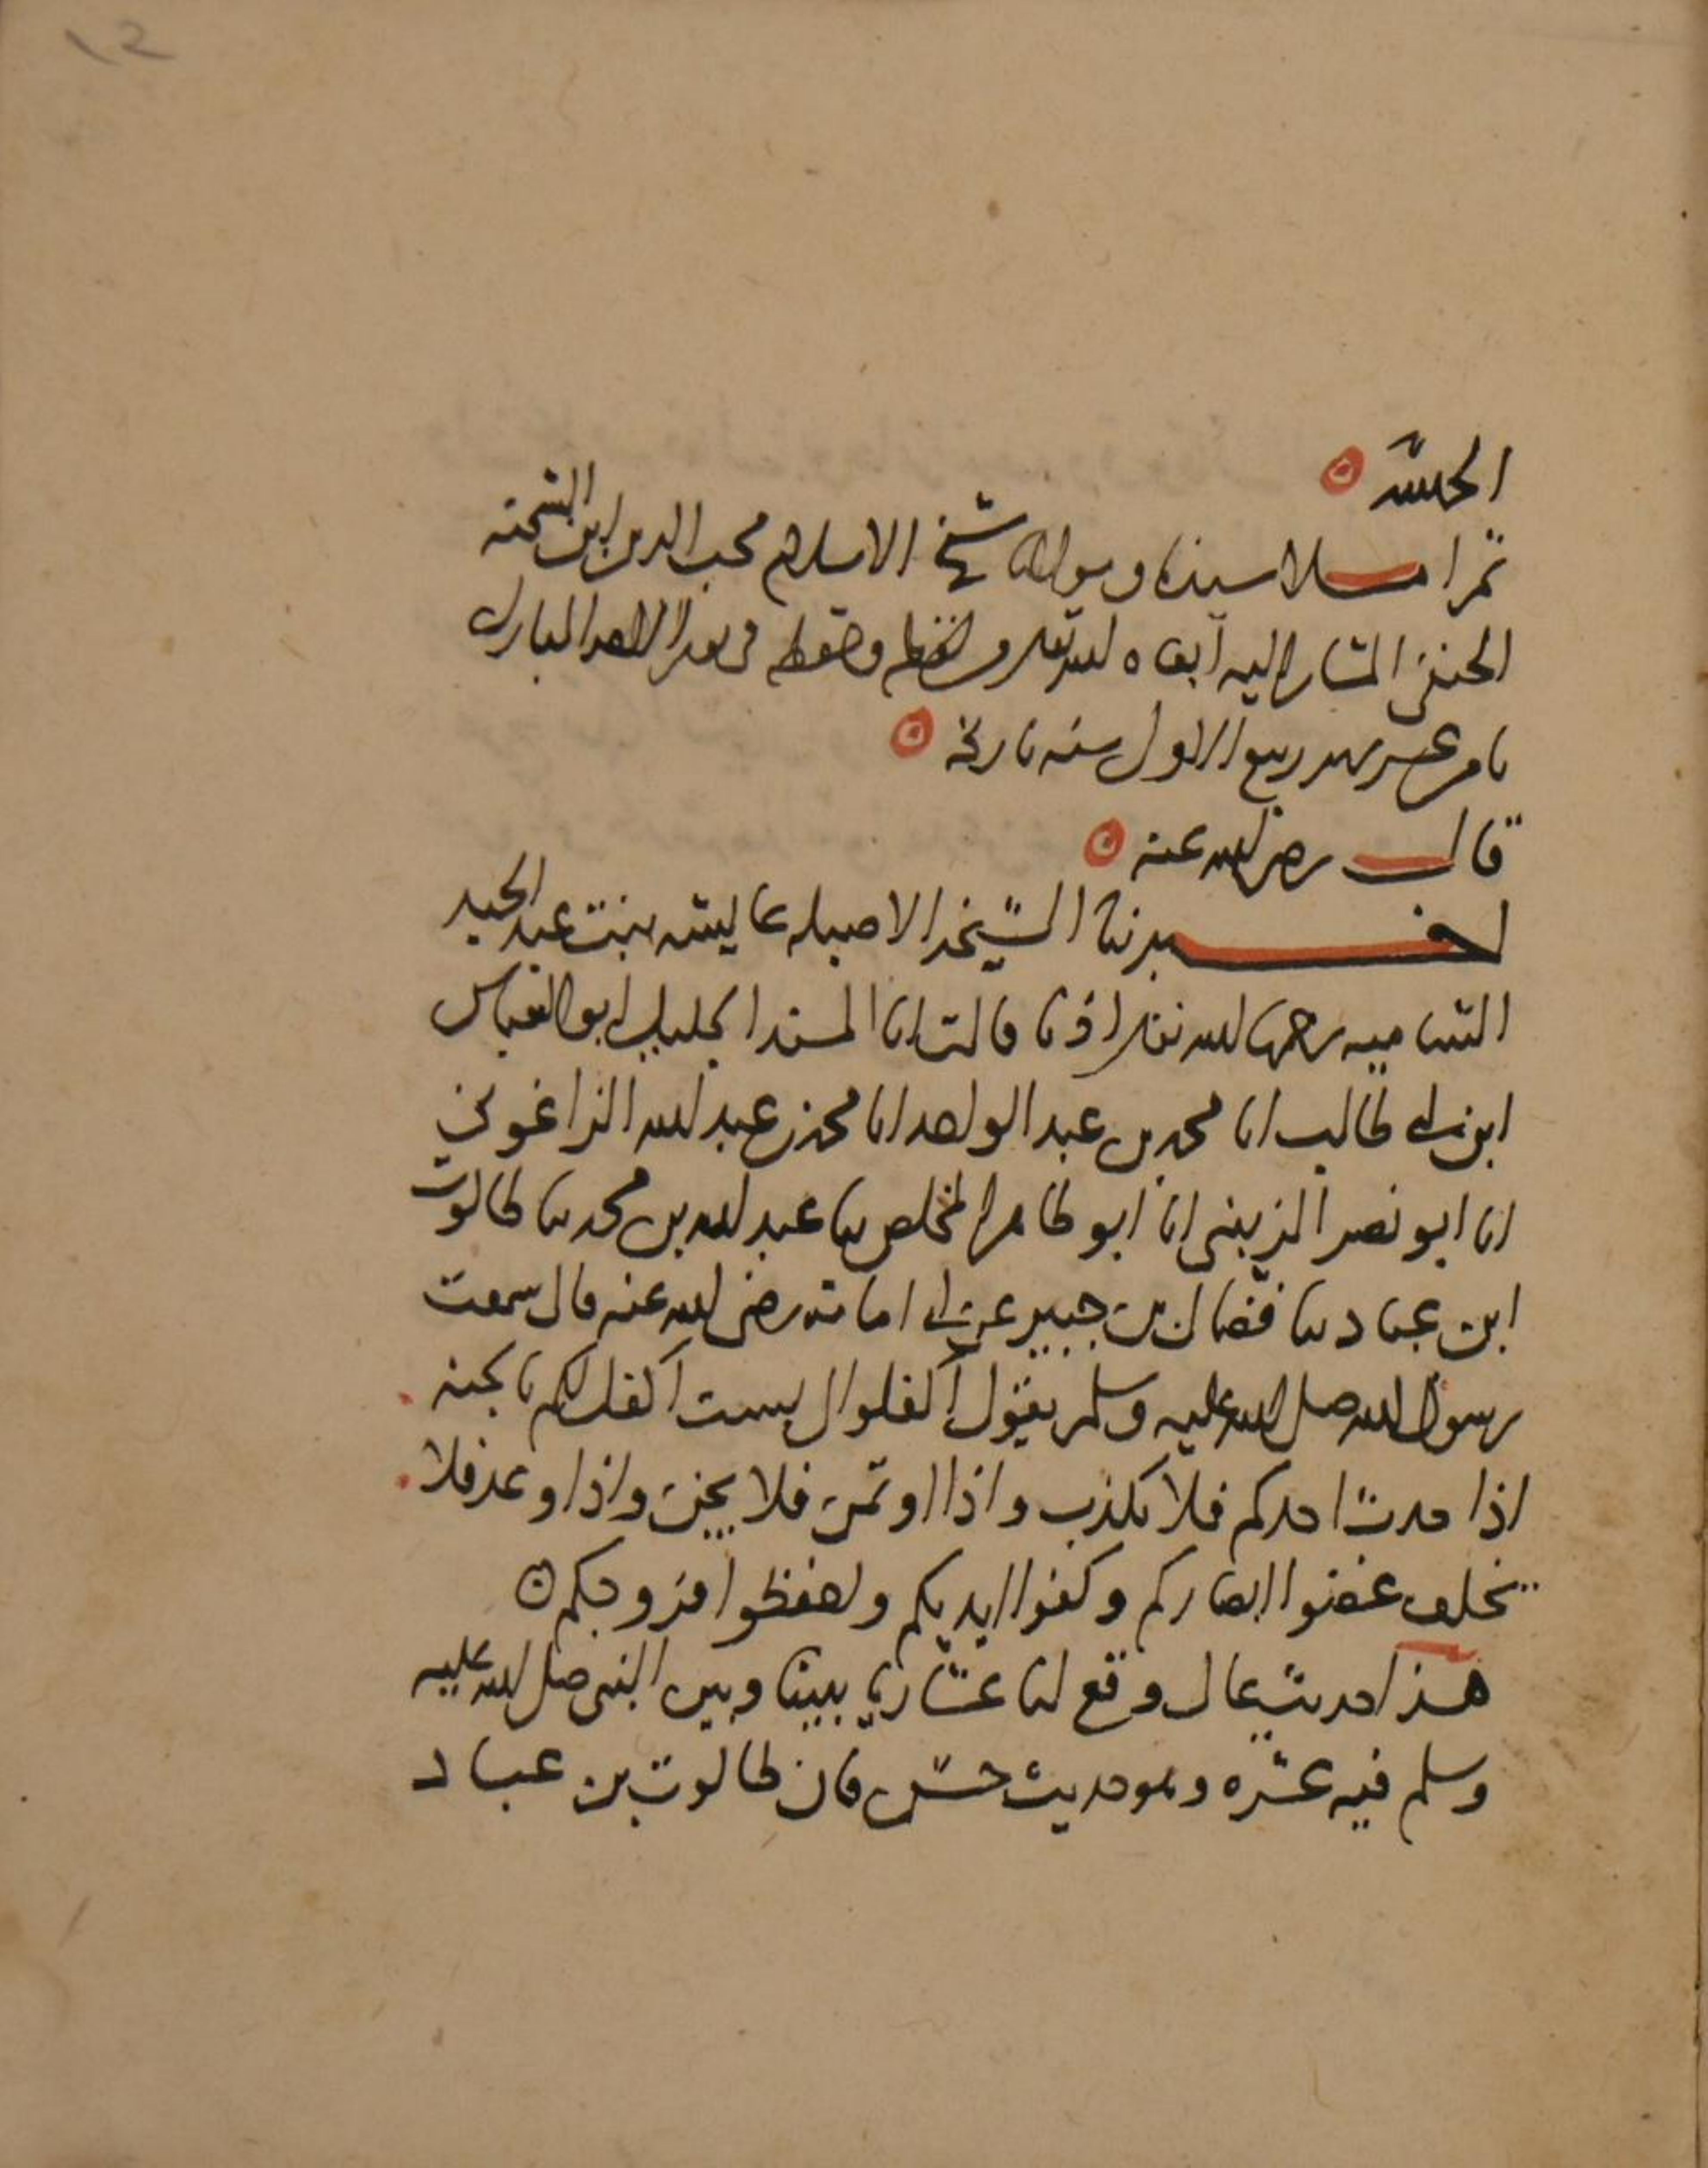 ١٢
ثم املا سيدنا ومولانا شيخ الاسلام محب الدين ابن الشحنه
الحنفى المشار اليه ابقاه الله تعالى وحفظه فى يوم الاحد المبارك
ثامن عشر شهر ربيع الاول سنه تاريخه
قال رضى الله عنه
اخبرتنا الشيخه الاصيله عايشه بنت عبد الحميد
رحمها الله تعالى اذنا قالت انا المسند الجليل ابو العباس
ابن ابى طالب انا محمد بن عبد الواحد انا محمد بن عبد الله الزاغونى
انا ابو نصر الزينبى انا ابو طاهر المخلص ثنا عبد الله بن محمد ثنا طالوت
ابن عباد ثنا فضال بن جبير عن ابى امامه رضى الله عنه قال سمعت
رسول الله صلى الله عليه وسلم يقول اكفلوا لى بست اكفل لكم بالجنه
اذا حدث احدكم فلا يكذب واذا اوتمن فلا يخن واذا وعد فلا
يخلف غضوا ابصاركم وكفوا ايديكم واحفظوا فروجكم
هذا حديث عال وقع لنا عشاريا بيننا وبين النبى صلى الله عليه
وسلم فيه عشره وهو حديث حسن فان طالوت بن عباد